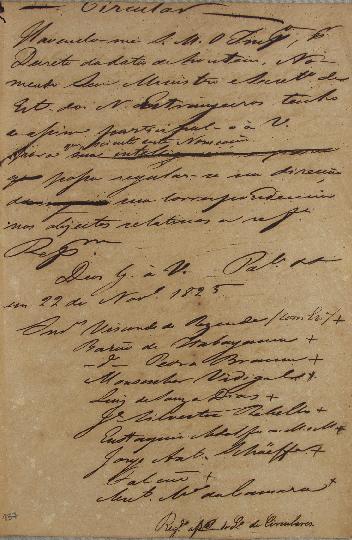 Circular
Havendo-me S. M. O Imp.or, p.r
Decreto da data de hontem, No-
meado Seu Ministro e Secret.o de
Est. do N. Estrangeiros tenho
a participal-o á V.
q possa regular-se na direcção
da sua correspondencia
nos objectos relativos a resp.
Rep.am
Deos G. a V. Pal.
em 22 de Nov.o 1825
Visconde de Rezende +
Barão de Itabayanna +
-D- Pedra Branca +
Monsenhor Vidigal +
Luiz de Souza Dias +
J.e Silvestre Rebello +
Eustaquio Adolfo M. M +
Jorge Ant. Schäffer +
M.el da Camara +
Reg. a do L.o de Circulares